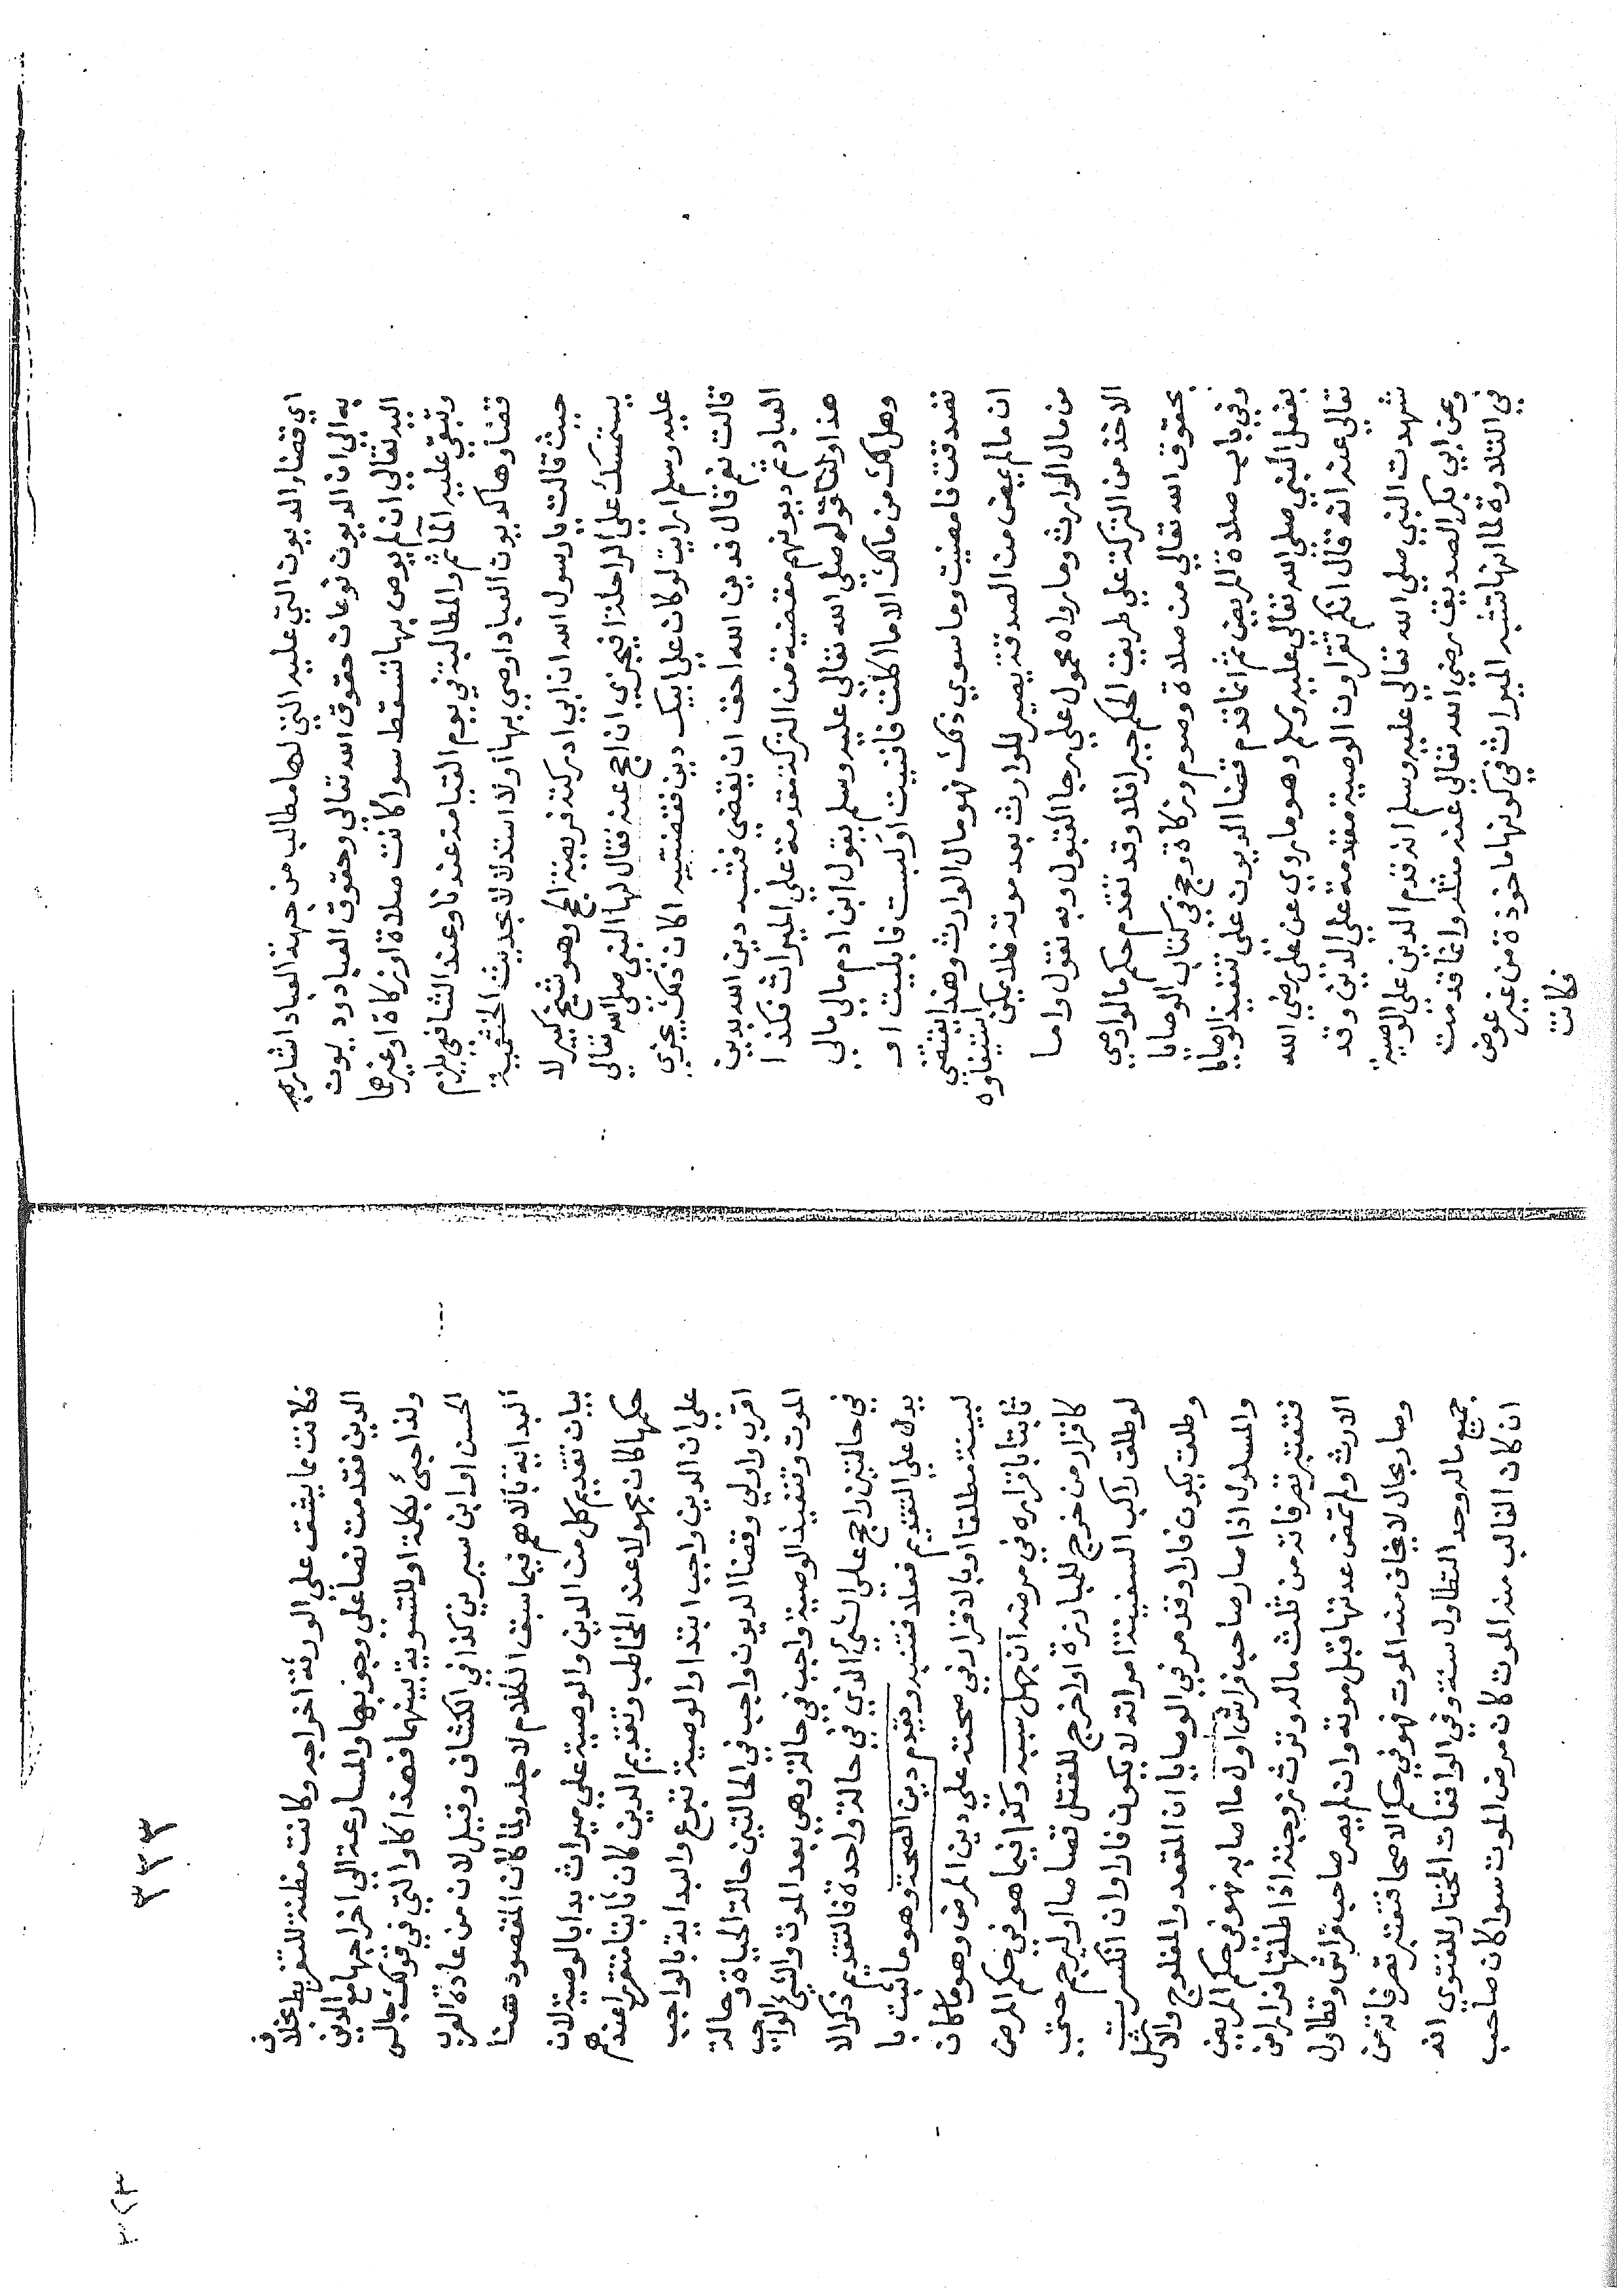 اي قضاء الديون التي عليه التي لها مطالب من جهة العباد اشار
به الي ان الديون نوعان حقوق الله تعالي وحقوق العباد وديون
الله تعالي ان لم يوص بها تسقط سوا كانت صلاة او زكاة او غيرها
وتبقي عليه المآثم والمطالبة في يوم القيامة عندنا وعند الشافعي يلزم
قضاوها كديون العباد اوصي بها أولا استدلالا بحديث الخثعمية
حيث قالت يارسول الله ان ابي ادركته فريضة الحج وهو شيخ كبير لا
يستمسك علي الراحلة افيجزي ان احج عنه فقال لها النبي صلي الله تعالي
عليه وسلم ارايت لوكان علي ابيك دين فقضيتيه اكان ذلك يجزي
قالت نعم قال فدين الله احق ان يقضي فشبه دين الله بدين
العباد ثم ديونهم مقضية من التركة مقدمة علي الميراث فكذا
هذا ولنا قوله صلي الله تعالي عليه وسلم يقول ابن ادم مالي مالي
وهل لك من مالك الا ما اكلت فافنيت او لبست فابليت او
تصدقت فامضيت وما سوي ذلك فهو مال الوارث وهذا يقتضي
ان ما لم يمض من الصدقة يصير للوارث بعد موته فلا يمكن استيفاوه
من مال الوارث وما رواه محمول علي رجا القبول وبه نقول واما
الاخذ من التركة علي طريق الحكم جبرا فلا وقد تقدم حكم ما لو اوصي
بحقوق الله تعالي من صلاة وصوم وزكاة وحج في كتاب الوصايا
وفي باب صلاة المريض ثم انما قدم قضا الديون علي تنفيذ الوصايا
بفعل النبي صلي الله تعالي عليه وسلم وهو ما روي عن علي رضي الله
تعالي عنه انه قال انكم تقراون الوصية مقدمة علي الدين وقد
شهدت النبي صلي الله تعالي عليه وسلم انه قدم الدين علي الوصية
وعن ابي بكر الصديق رضي الله تعالي عنه مثله وانما قدمت
في التلاوة لما انها تشبه الميراث في كونها ماخوذة من غير عوض
فكانت
٣٣٣
فكانت مما يشق علي الورثة اخراجه وكانت مظنة للتفريط بخلاف
الدين فقدمت نصا علي وجوبها والمسارعة الي اخراجها مع الدين
ولذا جئ بكلمة او للتسوية بينهما فهذا كاو التي في قولك جالس
الحسن او ابن سيرين كذا في الكشاف وقيل لان من عادة العرب
البداية بالاهم فيما سبق الكلام لاجله ولما كان المقصود هنا
بيان تقديم كل من الدين والوصية علي ميراث بدا بالوصية لان
حكمها كان مجهولا عند المخاطب وتقديم الدين كان ثابتا متقررا عندهم
علي ان الدين واجب ابتدا والوصية تبرع والبداية بالواجب
اقرب واولي وقضا الديون واجب في الحالتين حالة الحياة وحالة
الموت وتنفيذ الوصية واجب في حالة وهي بعد الموت والشئ الواجب
في حالتين راجح علي الشئ الذي في حالة واحدة فالتقديم ذكرا لا
يدل علي التقديم فعلا فتنبه ويقدم دين الصحة وهو ما ثبت با
لبينة مطلقا او بالاقرار في صحته علي دين المرض وهو ما كان
ثابتا باقراره في مرضه ان جهل سببه وكذا فيما هو في حكم المرض
كاقرار من خرج للمبارزة او اخرج للقتل قصاصا او ليرجم حتي
لو طلق راكب السفينة امراته لا يكون فارا وان انكسرت
وطلق يكون فارا وقد مر في الوصايا ان المقعد والمفلوج والاشل
والمسلول اذا صار صاحب فراش اول ما اصابه فهو في حكم المريض
فتعتبر تصرفاته من ثلث ماله وترث زوجته اذا طلقها فرارا من
الارث ولم تمض عدتها قبل موته وان لم يصر صاحب فراش وتطاول
وصار بحال لا يخاف منه الموت فهو في حكم الاصحا فتعتبر تصرفاته من
جميع ماله وحد التطاول سنة وفي الواقعات المختار للفتوي انه
ان كان الغالب منه الموت كان مرض الموت سوا كان صاحب